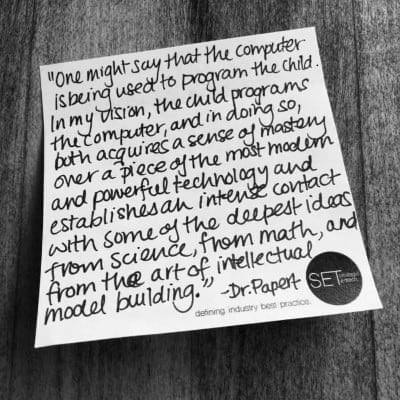 "One might say that the computer
is being used to program the child.
In my vision, the child programs
the computer, and in doing so,
both acquires a sense of mastery
over a piece of the most modern
and powerful technology and
establishes an intense contact
with some of the deepest ideas
from science, from math, and
from the art of intellectual
model building." -Dr. Papert
SET
defining industry best practice.